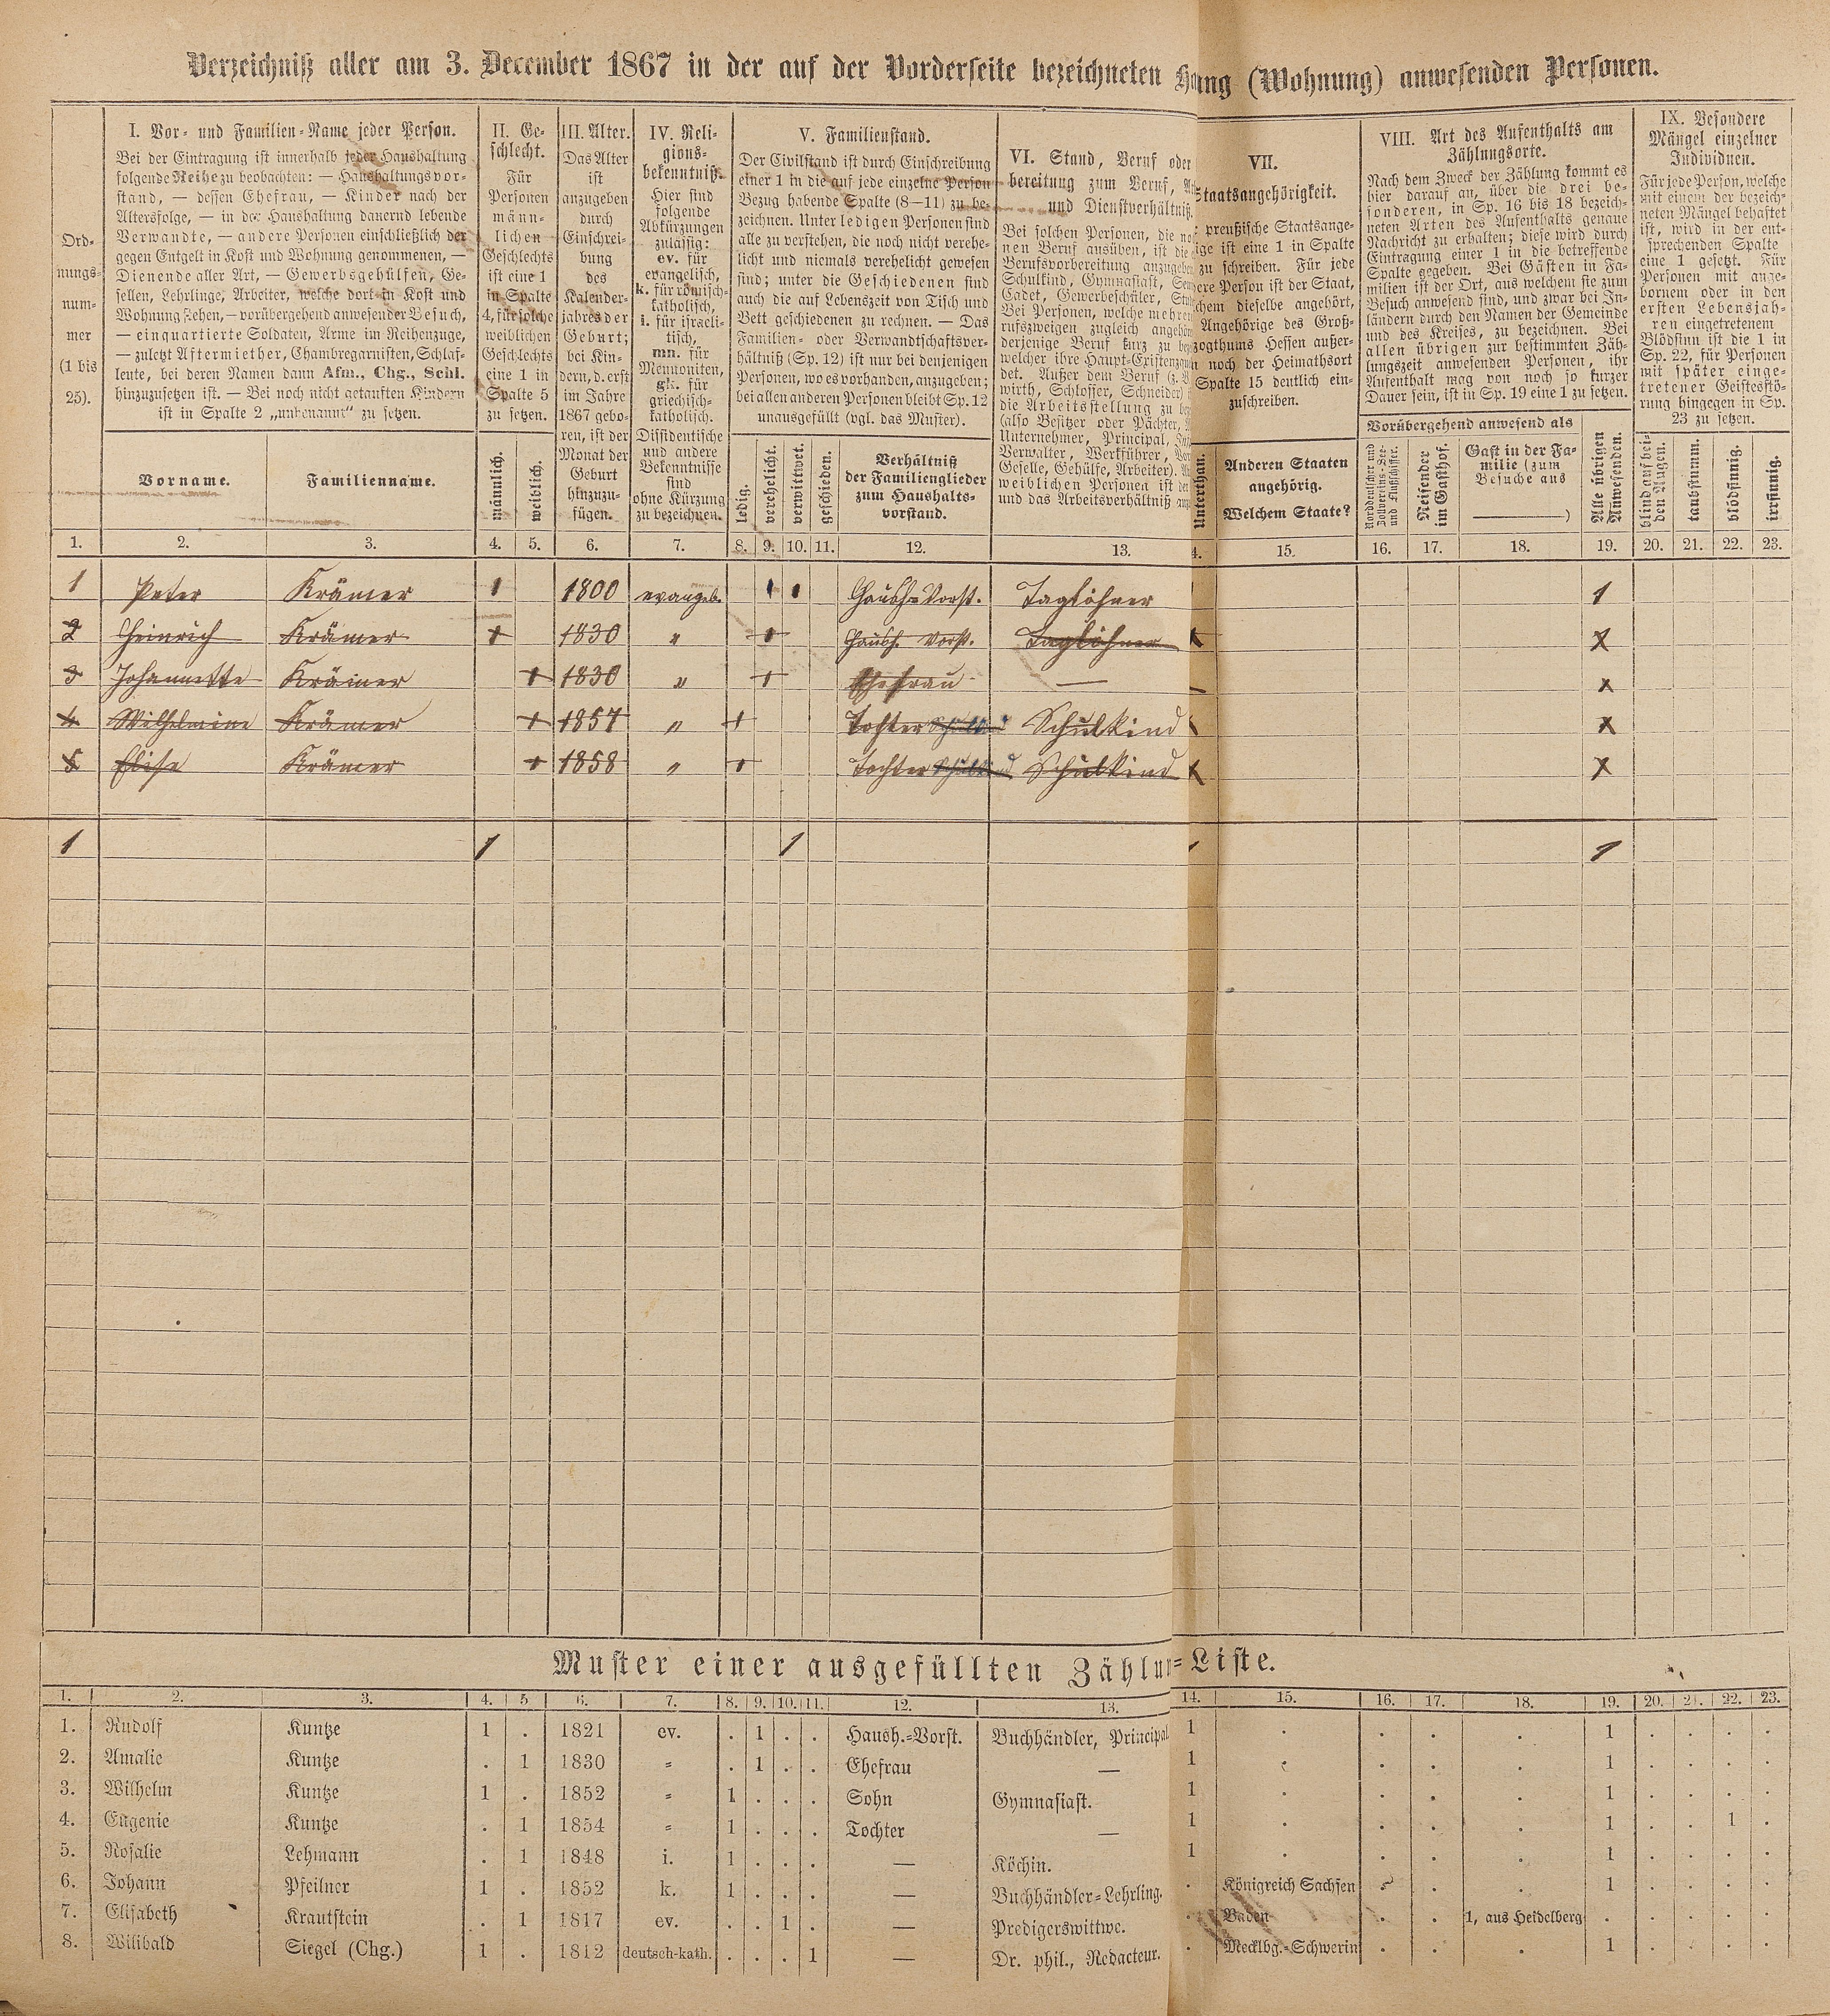 Verzeichniß aller am 3. December 1867 in der auf der Vorderseite bezeichneten Ha ng (Wohnung) anwesenden Personen.
Ord-
nungs-
num-
mer
(1 bis
25).
I. Vor- und Familien-Name jeder Person.
Bei der Eintragung ist innerhalb jeder Haushaltung
folgende Reihe zu beobachten: — Haushaltungsvor-
stand, — dessen Ehefrau, — Kinder nach der
Altersfolge, — in der Haushaltung dauernd lebende
Verwandte, — andere Personen einschließlich der
gegen Entgelt in Kost und Wohnung genommenen, —
Dienende aller Art, — Gewerbsgehülfen, Ge-
sellen, Lehrlinge, Arbeiter, welche dort in Kost und
Wohnung stehen, — vorübergehend anwesender Besuch,
— einquartierte Soldaten, Arme im Reihenzuge,
— zuletzt Aftermiether, Chambregarnisten, Schlaf-
leute, bei deren Namen dann Afm., Chg., Schl.
hinzuzusetzen ist. — Bei noch nicht getauften Kindern
ist in Spalte 2 „unbenannt“ zu setzen.
Vorname.
Familienname.
II. Ge-
schlecht.
Für
Personen
männ-
lichen
Geschlechts
ist eine 1
in Spalte
4, für solche
weiblichen
Geschlechts
eine 1 in
Spalte 5
zu setzen.
männlich.
weiblich.
III. Alter.
Das Alter
ist
anzugeben
durch
Einschrei-
bung
des
Kalender-
jahres der
Geburt;
bei Kin-
dern, d. erst
im Jahre
1867 gebo-
ren, ist der
Monat der
Geburt
hinzuzu-
fügen.
IV. Reli-
gions-
bekenntniß.
Hier sind
folgende
Abkürzungen
zulässig:
ev. für
evangelisch,
k. für römisch-
katholisch,
i. für israeli-
tisch,
mn. für
Mennoniten,
gk. für
griechisch-
katholisch.
Dissidentische
und andere
Bekenntnisse
sind
ohne Kürzung
zu bezeichnen.
V. Familienstand.
Der Civilstand ist durch Einschreibung
einer 1 in die auf jede einzelne Person
Bezug habende Spalte (8—11) zu be-
zeichnen. Unter ledigen Personen sind
alle zu verstehen, die noch nicht verehe-
licht und niemals verehelicht gewesen
sind; unter die Geschiedenen sind
auch die auf Lebenszeit von Tisch und
Bett geschiedenen zu rechnen. — Das
Familien- oder Verwandtschaftsver-
hältniß (Sp. 12) ist nur bei denjenigen
Personen, wo es vorhanden, anzugeben;
bei allen anderen Personen bleibt Sp. 12
unausgefüllt (vgl. das Muster).
ledig.
verehelicht.
verwittwet.
geschieden.
Verhältniß
der Familienglieder
zum Haushalts-
vorstand.
VI. Stand, Beruf oder
bereitung zum Beruf,
und Dienstverhältniß.
Bei solchen Personen, die
nen Beruf ausüben, ist die
Berufsvorbereitung anzugeben
Schulkind, Gymnasiast,
Cadet, Gewerbeschüler,
Bei Personen, welche mehren
rufszweigen zugleich
derjenige Beruf kurz zu
welcher ihre
det. Außer dem Beruf (z.
wirth, Schlosser, Schneider)
die Arbeitsstellung zu
(also Besitzer oder Pächter,
Unternehmer, Principal,
Verwalter, Werkführer,
Geselle, Gehülfe, Arbeiter).
weiblichen Personen ist
und das Arbeitsverhältniß
VII.
Staatsangehörigkeit.
preußische Staatsange-
ige ist eine 1 in Spalte
zu schreiben. Für jede
ere Person ist der Staat,
chem dieselbe angehört,
Angehörige des Groß-
zogthums Hessen außer-
noch der Heimathsort
Spalte 15 deutlich ein-
zuschreiben.
Unterthan.
Anderen Staaten
angehörig.
Welchem Staate?
VIII. Art des Aufenthalts am
Zählungsorte.
Nach dem Zweck der Zählung kommt es
hier darauf an, über die drei be-
sonderen, in Sp. 16 bis 18 bezeich-
neten Arten des Aufenthalts genaue
Nachricht zu erhalten; diese wird durch
Eintragung einer 1 in die betreffende
Spalte gegeben. Bei Gästen in Fa-
milien ist der Ort, aus welchem sie zum
Besuch anwesend sind, und zwar bei In-
ländern durch den Namen der Gemeinde
und des Kreises, zu bezeichnen. Bei
allen übrigen zur bestimmten Zäh-
lungszeit anwesenden Personen, ihr
Aufenthalt mag von noch so kurzer
Dauer sein, ist in Sp. 19 eine 1 zu setzen.
Vorübergehend anwesend als
Norddeutscher und
Zollvereins-See-
und Flußschiffer.
Reisender
im Gasthof.
Gast in der Fa-
milie (zum
Besuche aus
)
Alle übrigen
Anwesenden.
IX. Besondere
Mängel einzelner
Individuen.
Für jede Person, welche
mit einem der bezeich-
neten Mängel behaftet
ist, wird in der ent-
sprechenden Spalte
eine 1 gesetzt. Für
Personen mit ange-
bornem oder in den
ersten Lebensjah-
ren eingetretenem
Blödsinn ist die 1 in
Sp. 22, für Personen
mit später einge-
tretener Geistesstö-
rung hingegen in Sp.
23 zu setzen.
blind auf bei-
den Augen.
taubstumm.
blödsinnig.
irrsinnig.
1. 2. 3. 4. 5. 6. 7. 8. 9. 10. 11. 12. 13. 4. 15. 16. 17. 18. 19. 20. 21. 22. 23.
1 Peter Krämer 1 1800 evangel. 1 1 Haush. Vorst. Taglöhner 1
2 Heinrich Krämer 1 1830 " 1 Haush. Vorst. Taglöhner x
3 Johannette Krämer 1 1830 " 1 Ehefrau — x
4 Wilhelmine Krämer 1 1857 " 1 Tochter Schulkind Schulkind x
5 Elise Krämer 1 1858 " 1 Tochter Schulkind Schulkind x
1 1 1 1
Muster einer ausgefüllten Zählu =Liste.
1. 2. 3. 4. 5 6. 7. 8. 9. 10. 11. 12. 13. 14. 15. 16. 17. 18. 19. 20. 21. 22. 23.
1. Rudolf Kuntze 1 . 1821 ev. . 1 . . Haush.=Vorst. Buchhändler, Principal 1 . . . . 1 . . . .
2. Amalie Kuntze . 1 1830 = . 1 . . Ehefrau — 1 . . . . 1 . . . .
3. Wilhelm Kuntze 1 . 1852 = 1 . . . Sohn Gymnasiast. 1 . . . . 1 . . . .
4. Eugenie Kuntze . 1 1854 = 1 . . . Tochter — 1 . . . . 1 . . 1 .
5. Rosalie Lehmann . 1 1848 i. 1 . . . — Köchin. 1 . . . . 1 . . . .
6. Johann Pfeilner 1 . 1852 k. 1 . . . — Buchhändler=Lehrling. . Königreich Sachsen . . . 1 . . . .
7. Elisabeth Krautstein . 1 1817 ev. . . 1 . — Predigerswittwe. . Baden . . 1, aus Heidelberg . . . . .
8. Wilibald Siegel (Chg.) 1 . 1812 deutsch-kath. . . . 1 — Dr. phil., Redacteur. . Mecklbg.=Schwerin . . . 1 . . . .